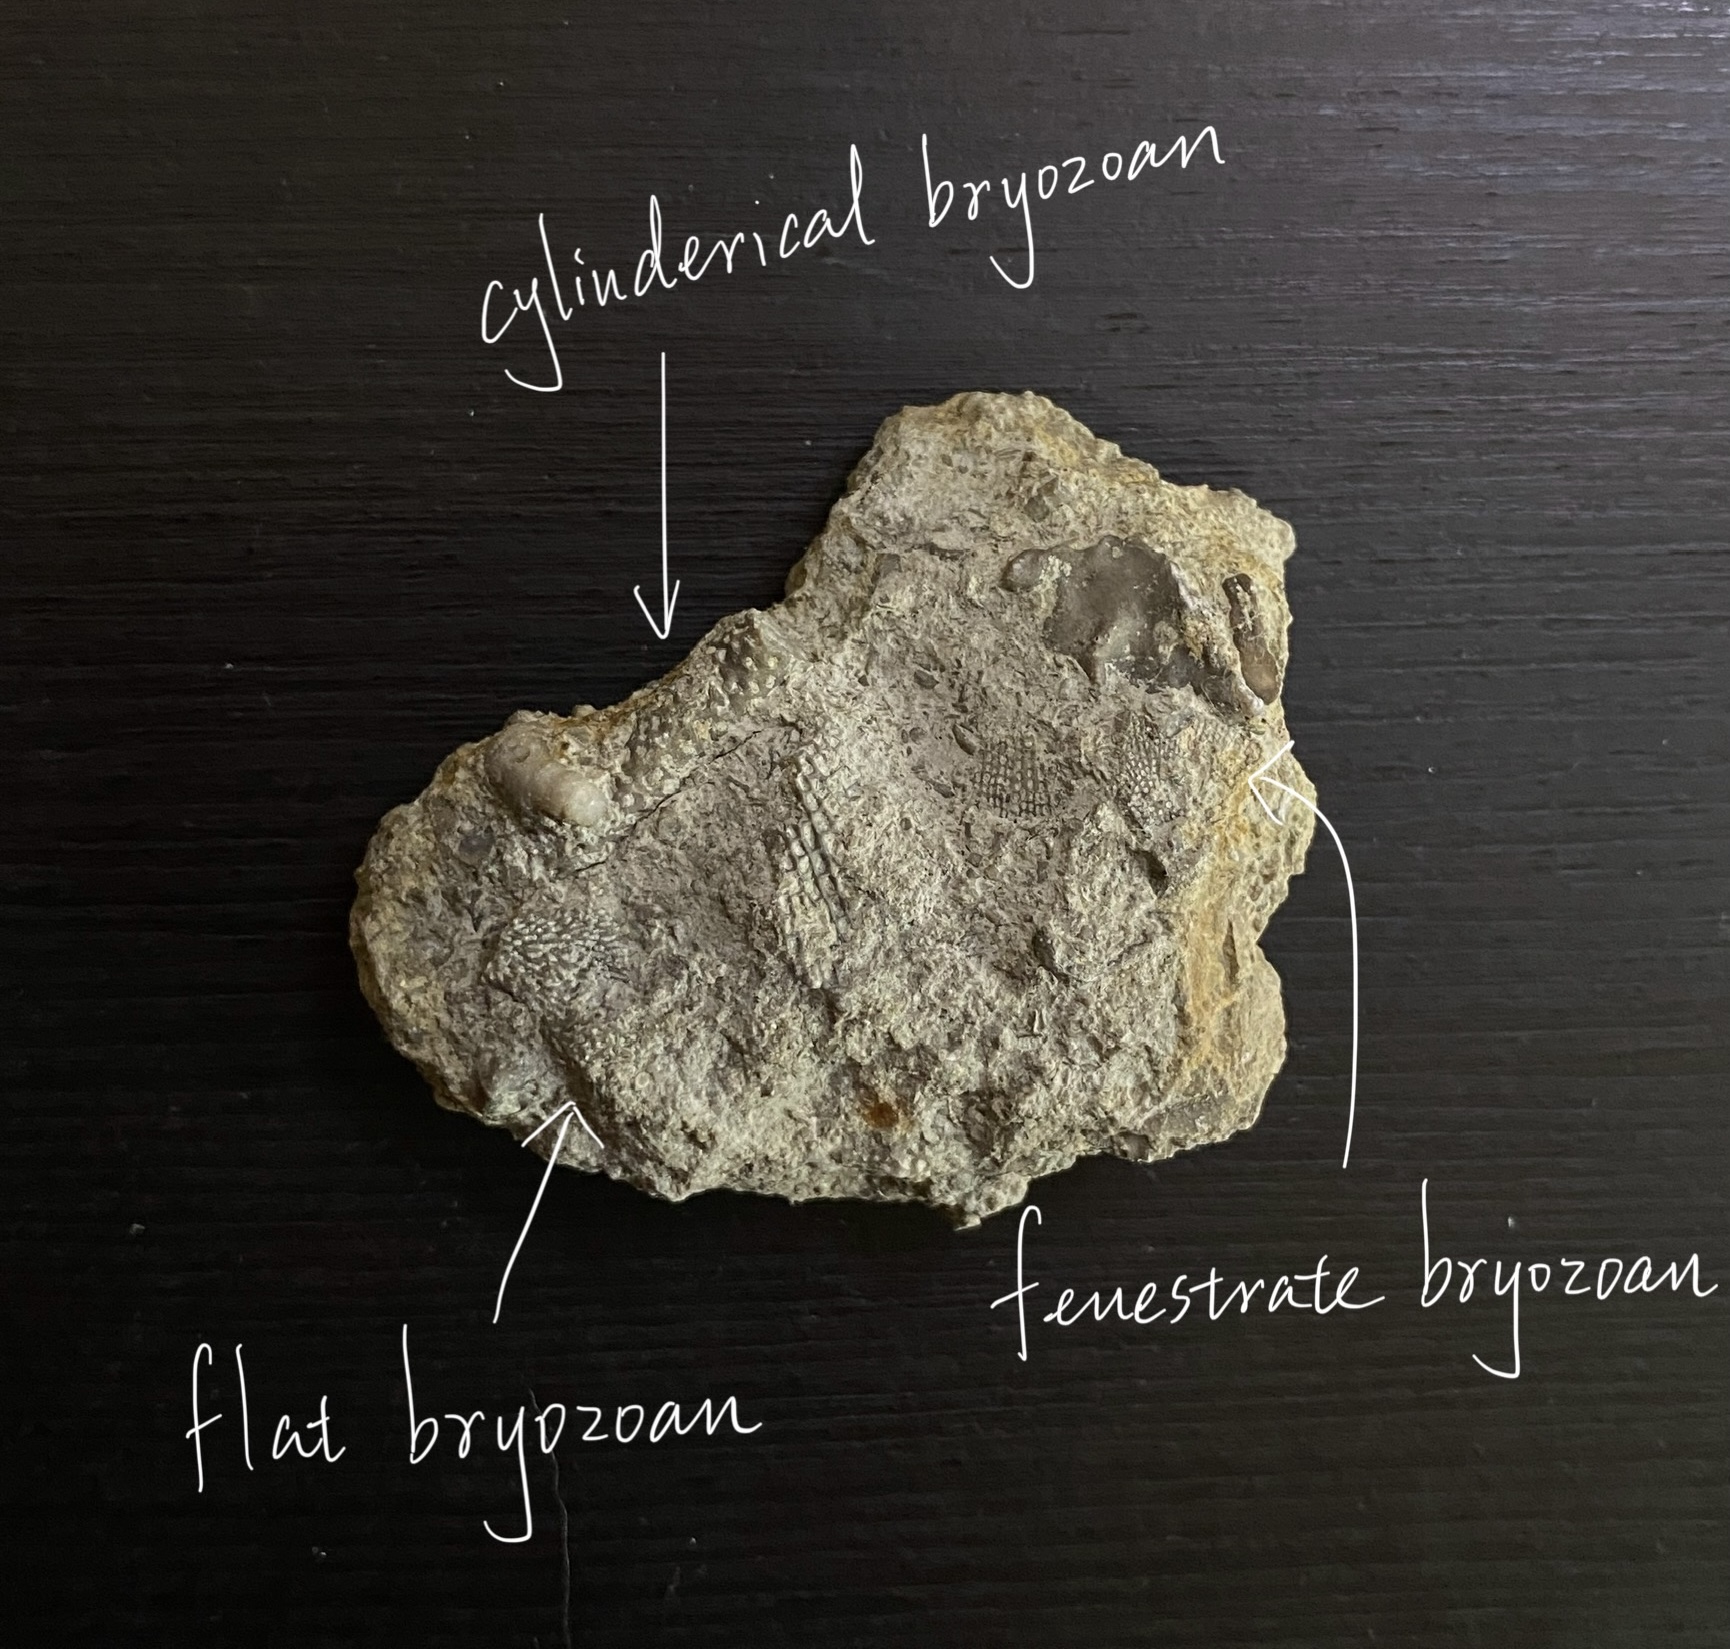 cylinderical bryozoan
fenestrate bryozoan
flat bryozoan